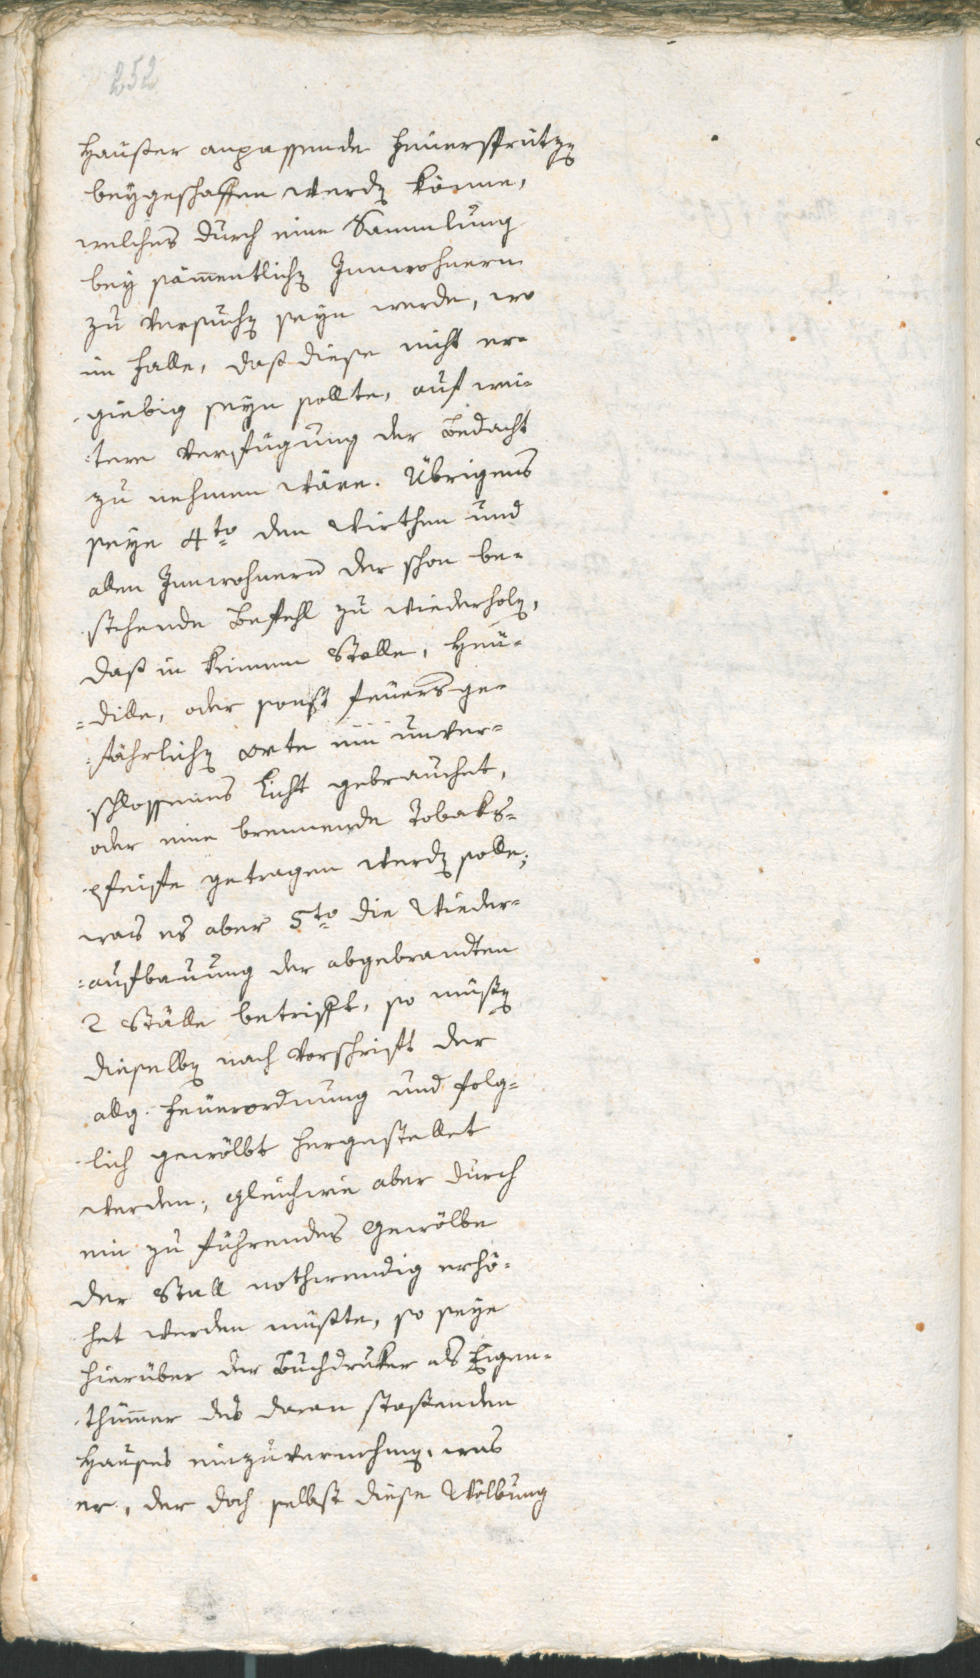 252
Häußer anpassende Feüersprützen
beygeschaffen werden könne,
welches durch eine Sammlung
bey sämmentlichen Innwohnern
zu versuchen seyn werde, wo
im Falle, daß diese nicht er-
giebig seyn sollte, auf wei-
tere Verfügung der Bedacht
zu nehmen wäre. Übrigens
seye 4to den Wirthen und
allen Innwohnern der schon be-
stehende Befehl zu wiederholen,
daß in keinem Stalle, Heu-
dille, oder sonst feüersge-
fährlichen Orte ein unver-
schlossenes Licht gebrauchet,
oder eine brennende Tobaks-
pfeiffe getragen werden solle;
was es aber 5to die Wieder-
aufbauung der abgebrandten
2 Ställe betrifft, so müßen
dieselben nach Vorschrift der
allg. Feüerordnung und folg-
lich gewölbt hergestellet
werden; gleichwie aber durch
ein zu führendes Gewölbe
der Stall nothwendig erhö-
het werden müßte, so seye
hierüber der Buchdruker als Eigen-
thümmer des daran stoßenden
Hauses einzuvernehmen, was
er, der doch selbst diese Wölbung